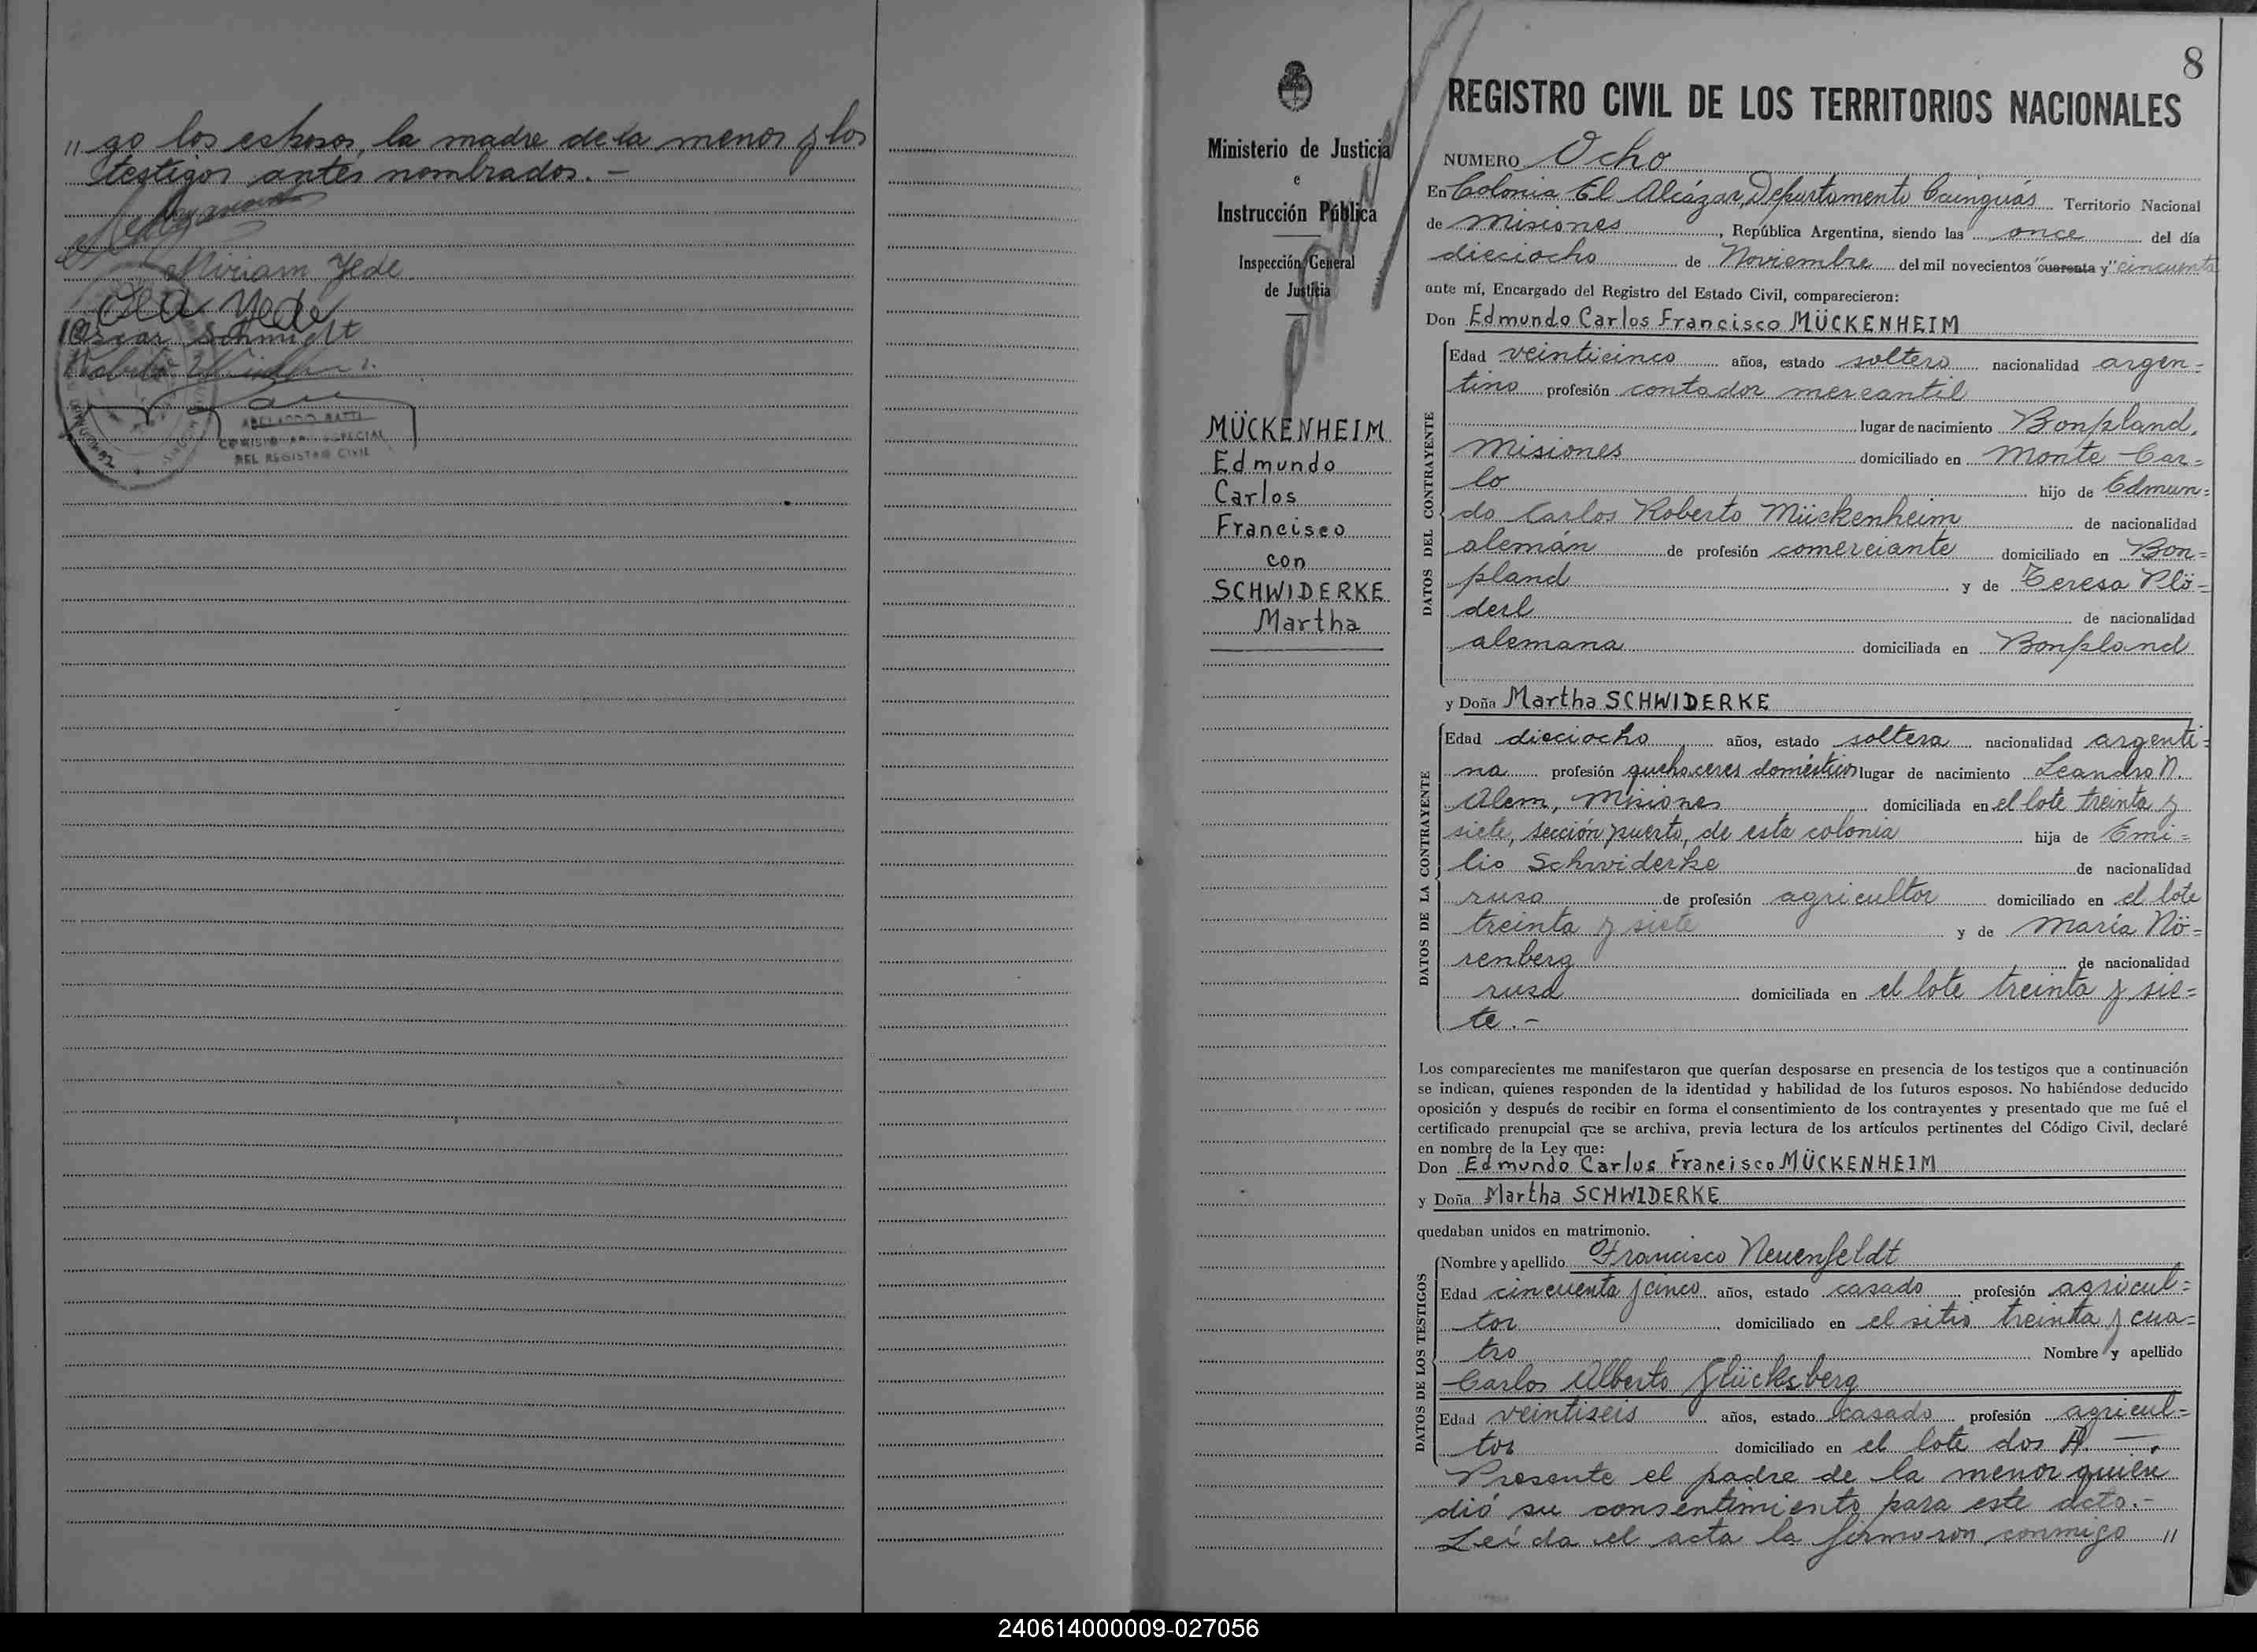 " go los esposos, la madre de la menor y los
testigos antes nombrados.-
Miriam Yede
Yede
Oscar Schmidt
ABELARDO RATTI
COMISIONADO ESPECIAL
DEL REGISTRO CIVIL
8
Ministerio de Justicia
e
Instrucción Pública
Inspección General
de Justicia
MÜCKENHEIM
Edmundo
Carlos
Francisco
con
SCHWIDERKE
Martha
REGISTRO CIVIL DE LOS TERRITORIOS NACIONALES
NUMERO Ocho
En Colonia El Alcázar, Departamento Cainguás Territorio Nacional
de Misiones, República Argentina, siendo las once del día
dieciocho de Noviembre del mil novecientos "cuarenta y" cincuenta
ante mí, Encargado del Registro del Estado Civil, comparecieron:
Don Edmundo Carlos Francisco MÜCKENHEIM
DATOS DEL CONTRAYENTE
Edad veinticinco años, estado soltero nacionalidad argen=
tino profesión contador mercantil
lugar de nacimiento Bonpland,
Misiones domiciliado en Monte Car=
lo hijo de Edmun=
do Carlos Roberto Mückenheim de nacionalidad
alemán de profesión comerciante domiciliado en Bon=
pland y de Teresa Plö=
derl de nacionalidad
alemana domiciliada en Bonpland
y Doña Martha SCHWIDERKE
DATOS DE LA CONTRAYENTE
Edad dieciocho años, estado soltera nacionalidad argenti=
na profesión quehaceres domésticos lugar de nacimiento Leandro N.
Alem, Misiones domiciliada en el lote treinta y
siete, sección puerto, de esta colonia hija de Emi=
lio Schwiderke de nacionalidad
ruso de profesión agricultor domiciliado en el lote
treinta y siete y de María Nö=
renberg de nacionalidad
rusa domiciliada en el lote treinta y sie=
te.-
Los comparecientes me manifestaron que querían desposarse en presencia de los testigos que a continuación
se indican, quienes responden de la identidad y habilidad de los futuros esposos. No habiéndose deducido
oposición y después de recibir en forma el consentimiento de los contrayentes y presentado que me fué el
certificado prenupcial que se archiva, previa lectura de los artículos pertinentes del Código Civil, declaré
en nombre de la Ley que:
Don Edmundo Carlos Francisco MÜCKENHEIM
y Doña Martha SCHWIDERKE
quedaban unidos en matrimonio.
DATOS DE LOS TESTIGOS
Nombre y apellido Francisco Neuenfeldt
Edad cincuenta y cinco años, estado casado profesión agricul=
tor domiciliado en el sitio treinta y cua=
tro Nombre y apellido
Carlos Alberto Glücksberg
Edad veintiseis años, estado casado profesión agricul=
tor domiciliado en el lote dos A.
Presente el padre de la menor quien
dió su consentimiento para este acto.-
Leída el acta la firmaron conmigo "
240614000009-027056